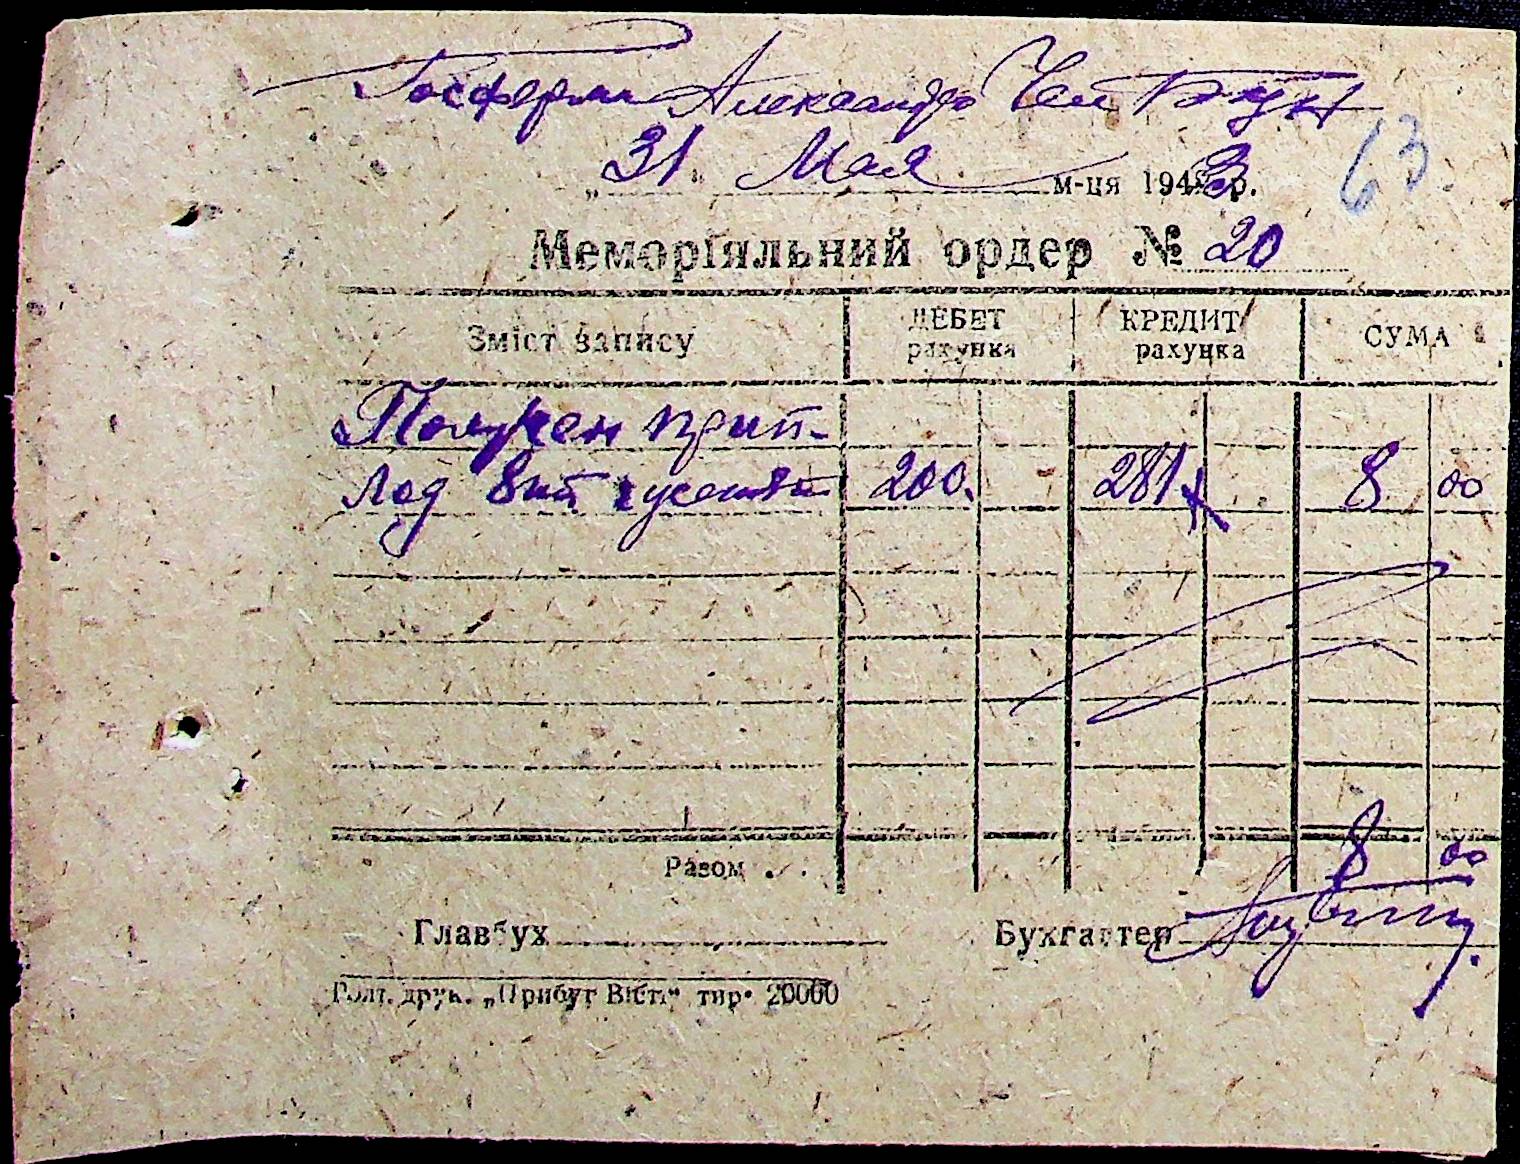 Госферма Александро
63
„31" Мая м-ця 1943 р.
Меморіяльний ордер № 20
Зміст запису ДЕБЕТ рахунка КРЕДИТ рахунка СУМА
Получен прип-
лод 8 шт гусенят 200. - 281 8 00
Разом . . 8 00
Главбух Бухгалтер
Голт. друк. „Прибуг Вісті" тир. 20000